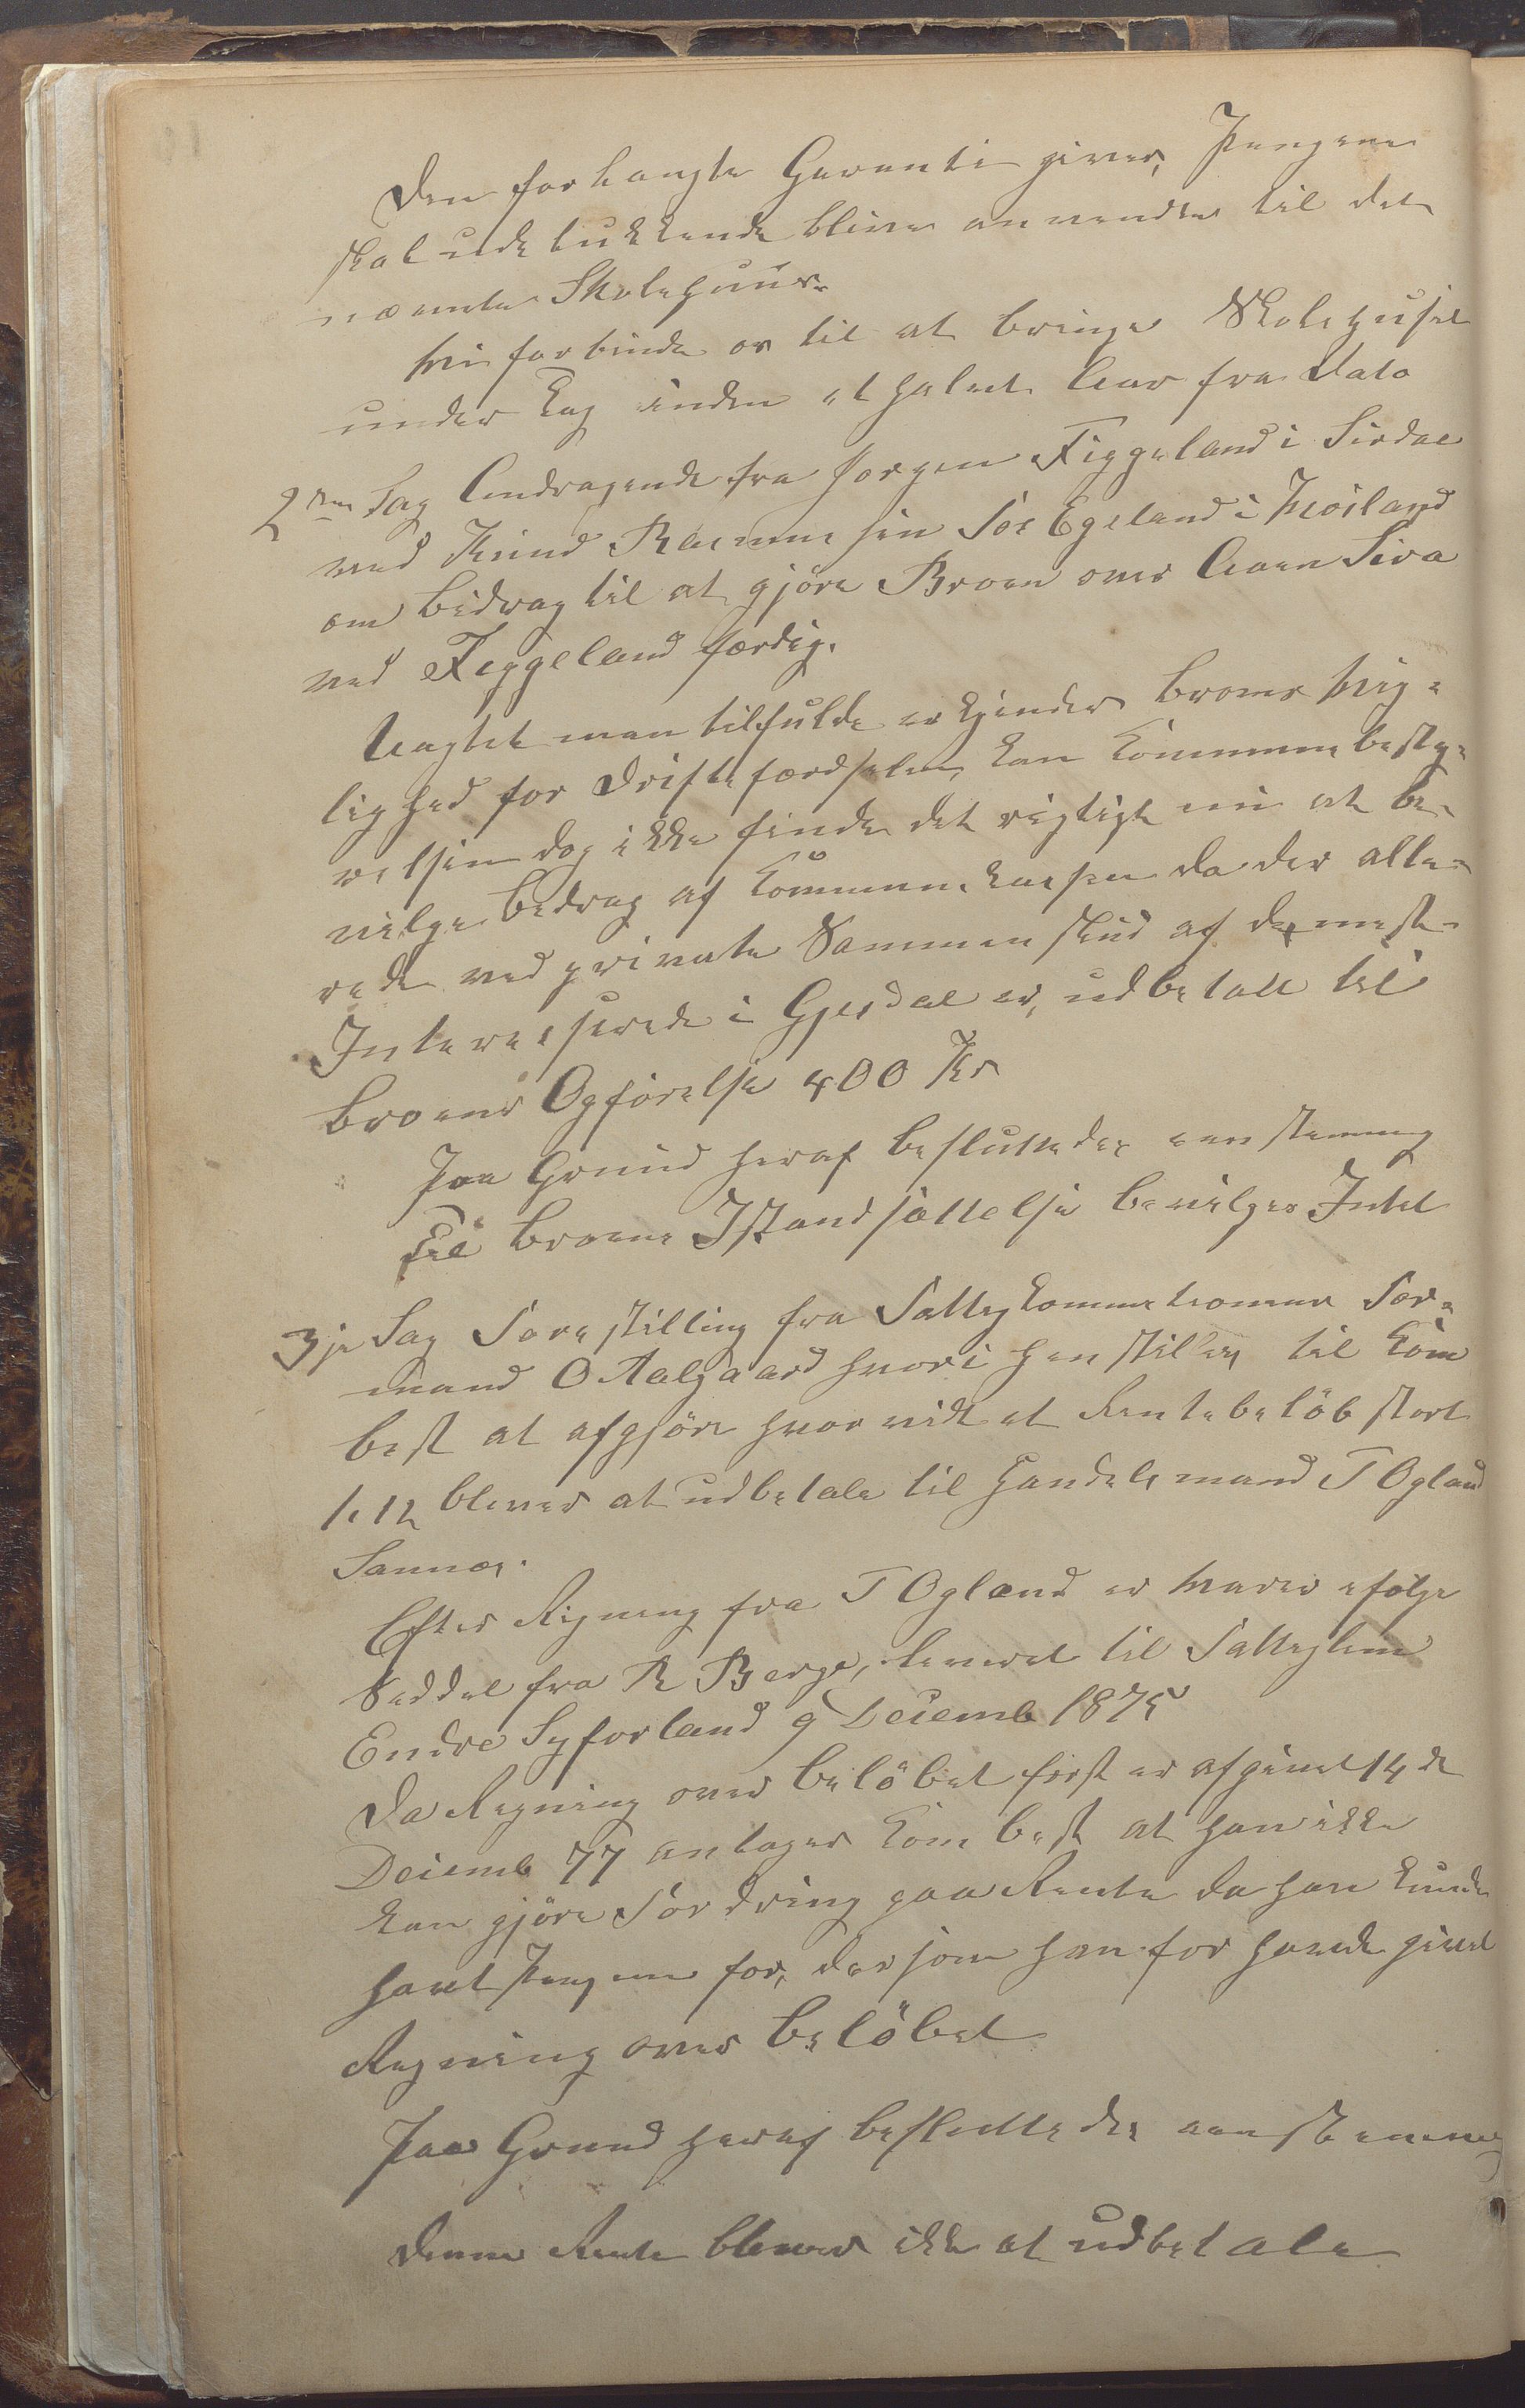 Den forlangte Garanti gives, Pengene
skal udelukkende blive anvendte til det
nævnte Skolehuus.
Vi forbinde os til at bringe Skolehuset
under Tag inden et halvt Aar fra Dato
2den Sag Andragende fra Jorgen Figgeland i Sirdal
ved Knud Rasmussen Sør Egeland i Hæiland
om Bidrag til at gjöre Broen over Aaen Sira
ved Feggeland færdig.
Uagtet man tilfulde erkjender Broens Vig-
lighed for Driftefærdselen, kan Kommunebesty-
relsen dog ikke finde det rigtigt nu at be-
vilge Bedrag af Kommunekassen da der alle-
rede ved private Sammenskud af de mest
Interesserede i Gjesdal er, udbetalt til
Broens Opførelse 400 Kr
Paa Grund heraf besluttedes eenstemmig
Til Broens Istandsættelse bevilges Intet
3je Sag Forestilling fra Fattigkommissionens For-
mand O Aalgaard hvori henstilles til Kom
best at afgjöre hvorvidt et Rentebelöb stort
1.12 blever at udbetale til Handelsmand T Ogland
Sannæs.
Efter Regning fra T Ogland er Varer ifølge
Seddel fra R Berge, leveret til Fattiglem
Endre Fyforland 9 Decemb 1875
Da Regning over Belöbet først er afgivet 14de
Decemb 77 antager Kom best at han ikke
kan gjöre Fordring paa Rente da han kunde
havt Pengene for, dersom han for havde givet
Regning over Belöbet
Paa Grund heraf besluttedes eenstemmig
Denne Rente blever ikke at udbetale